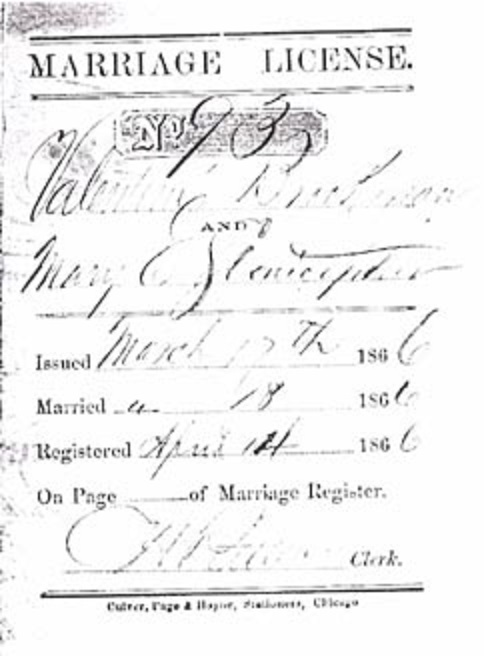 MARRIAGE LICENSE.
No 93
Valentine Brockman
AND
Mary E
Issued March 17th 1866
Married " 18 1866
Registered April 14 1866
On Page of Marriage Register.
Clerk.
Culver, Page & Hoyne, Stationers, Chicago